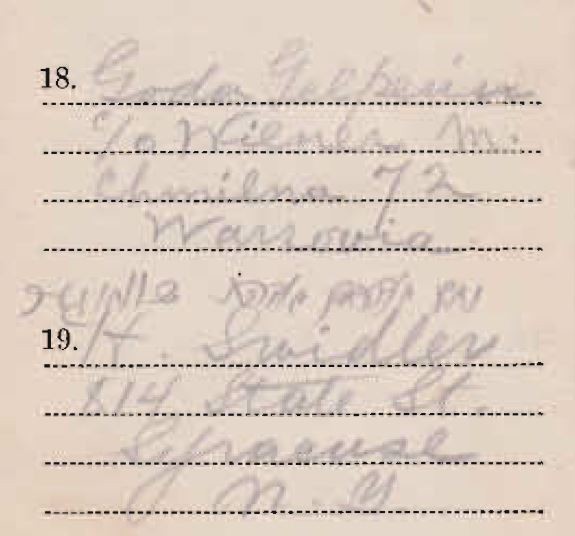 18. Goda Galperin
c/o Wiener M.
Chmielna 72
Warsowia
19. H. Swidler
814 State St.
Syracuse
N. Y